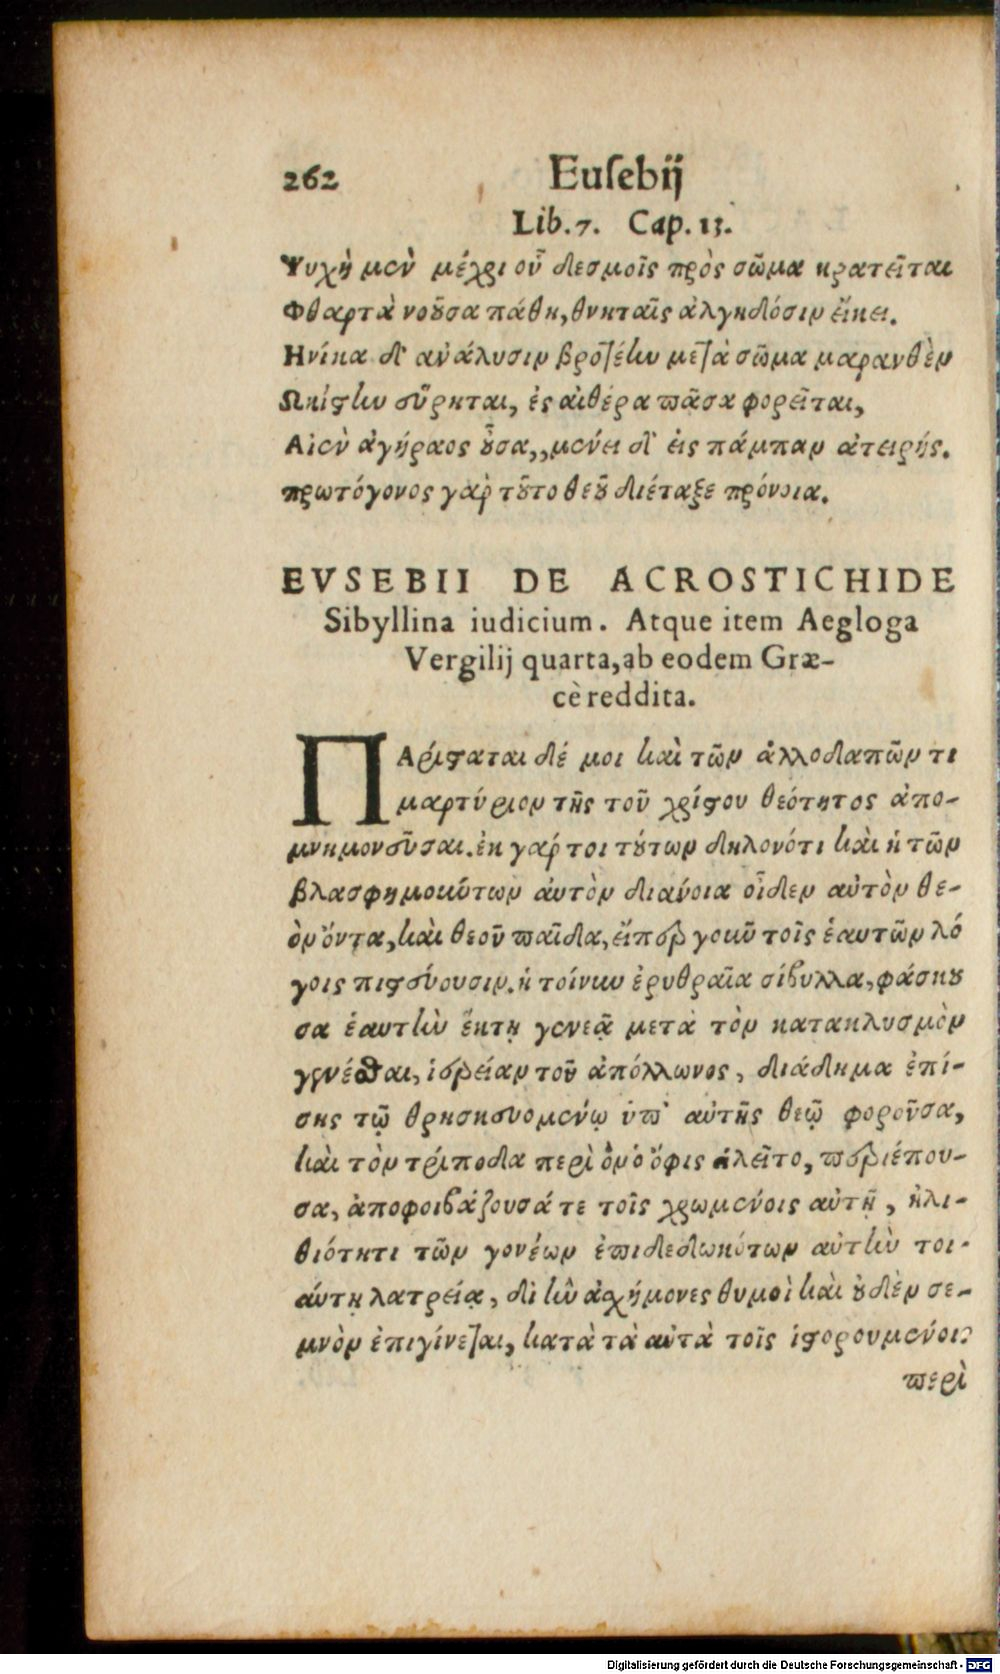 262 Euſebij
Lib. 7. Cap. 13.
Ψυχὴ μὲν μέχρι οὗ δεσμοῖς πρὸς σῶμα κρατεῖται
Φθαρτὰ νοοῦσα πάθη, θνηταῖς ἀλγηδόσιν εἴκει.
Ηνίκα δ' ἀνάλυσιν βροτέην μετὰ σῶμα μαρανθὲν
Ωκίστην εὕρηται, ἐς αἰθέρα πᾶσα φορεῖται,
Αἰὲν ἀγήραος οὖσα,, μένει δ' εἰς πάμπαν ἀτειρής.
πρωτόγονος γὰρ τοῦτο θεοῦ διέταξε πρόνοια.
EVSEBII DE ACROSTICHIDE
Sibyllina iudicium. Atque item Aegloga
Vergilij quarta, ab eodem Græ-
cè reddita.
ΠΑρίσταται δέ μοι καὶ τῶν ἀλλοδαπῶν τι
μαρτύριον τῆς τοῦ χρίστου θεότητος ἀπο-
μνημονεῦσαι. ἐκ γάρ τοι τούτων δηλονότι καὶ ἡ τῶν
βλασφημούντων αὐτὸν διάνοια οἶδεν αὐτὸν θε-
ὸν ὄντα, καὶ θεοῦ παῖδα, εἴπερ γοῦν τοῖς ἑαυτῶν λό
γοις πιστεύουσιν. ἡ τοίνυν ἐρυθραῖα σίβυλλα, φάσκου
σα ἑαυτὴν ἕκτῃ γενεᾷ μετὰ τὸν κατακλυσμὸν
γενέσθαι, ἱερείαν τοῦ ἀπόλλωνος, διάδημα ἐπί-
σης τῷ θρησκευομένῳ ὑπ' αὐτῆς θεῷ φοροῦσα,
καὶ τὸν τρίποδα περὶ ὃν ὁ ὄφις εἱλεῖτο, περιέπου-
σα, ἀποφοιβάζουσά τε τοῖς χρωμένοις αὐτῇ, ἠλι-
θιότητι τῶν γονέων ἐπιδεδωκότων αὐτὴν τοι-
αύτῃ λατρείᾳ, δι' ἣν ἀσχήμονες θυμοὶ καὶ οὐδὲν σε-
μνὸν ἐπιγίνεται, κατὰ τὰ αὐτὰ τοῖς ἱστορουμένοις
περὶ
Digitalisierung gefördert durch die Deutsche Forschungsgemeinschaft - DFG